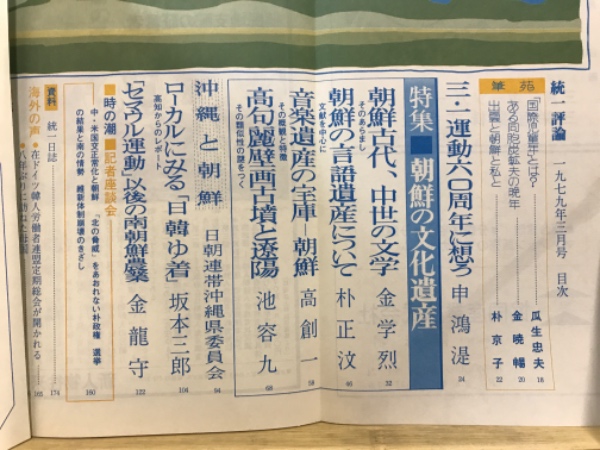 統一評論 一九七九年三月号 目次
筆苑
「国際児童年」とは? 瓜生忠夫 18
ある同胞炭鉱夫の晩年 金暁幅 20
出雲と朝鮮と私と 朴京子 22
三・一運動六〇周年に想う 申鴻湜 24
特集■朝鮮の文化遺産
朝鮮古代、中世の文学 金学烈 32
そのあらまし
朝鮮の言語遺産について 朴正汶 46
文献を中心に
音楽遺産の宝庫—朝鮮 高創一 58
その概観と特徴
高句麗壁画古墳と遼陽 池容九 68
その類似性の謎をつく
沖縄と朝鮮 日朝連帯沖縄県委員会 94
ローカルにみる「日韓ゆ着」 坂本三郎 104
高知からのレポート
「セマウル運動」以後の南朝鮮農業 金龍守 122
■時の潮■記者座談会
中・米国交正常化と朝鮮 「北の脅威」をあおれない朴政権 選挙
の結果と南の情勢 維新体制崩壊のきざし 160
資料 統一日誌 174
海外の声 ●在ドイツ韓人労働者連盟定期総会が開かれる 161